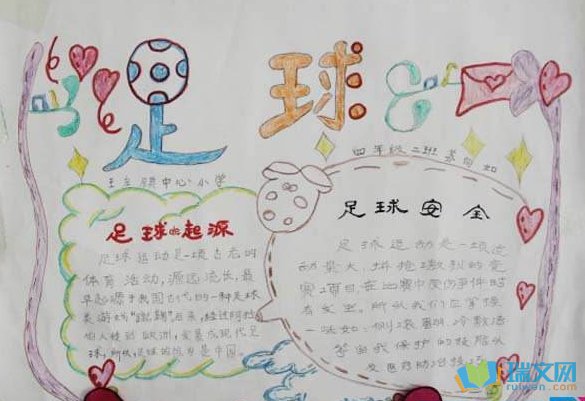 足球
四年级二班
中心小学
足球的起源
足球运动是一项古老的
体育活动，源远流长，最
早起源于我国古代的一种足球
类游戏"蹴鞠"后来，经过阿拉
伯人传到欧洲，发展成现代足
球，所以足球的故乡是中国。
足球安全
足球运动是一项运
动量大，拼抢激烈的竞
赛项目，在比赛中受伤事件时
有发生。所以我们应掌握
一些如：侧滚翻
等自我保护的技
瑞文网
ruiwen.com